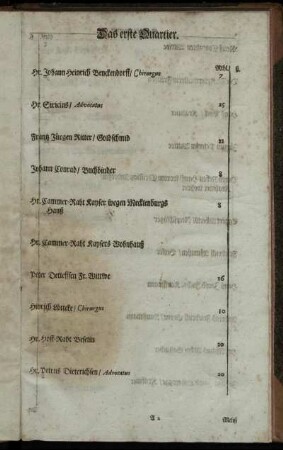 Das erste Quartier.
Mkl/ ß.
Hr. Johann Heinrich Benckendorff/ Chirurgus 7
Hr. Siricius/ Advocatus 15
Frantz Jürgen Ritter/ Goldschmid 12
Johann Conrad/ Buchbinder 8
Hr. Cammer-Raht Kayser wegen Mecklenburgs 8
Hauß
Hr. Cammer-Raht Kaysers Wohnhauß
Peter Detleffsen Fr. Wittwe 16
Hinrich Lütcke/ Chirurgus 10
Hr. Hoff-Raht 20
Hr. Petrus Dieterichsen/ Advocatus 20
A 2